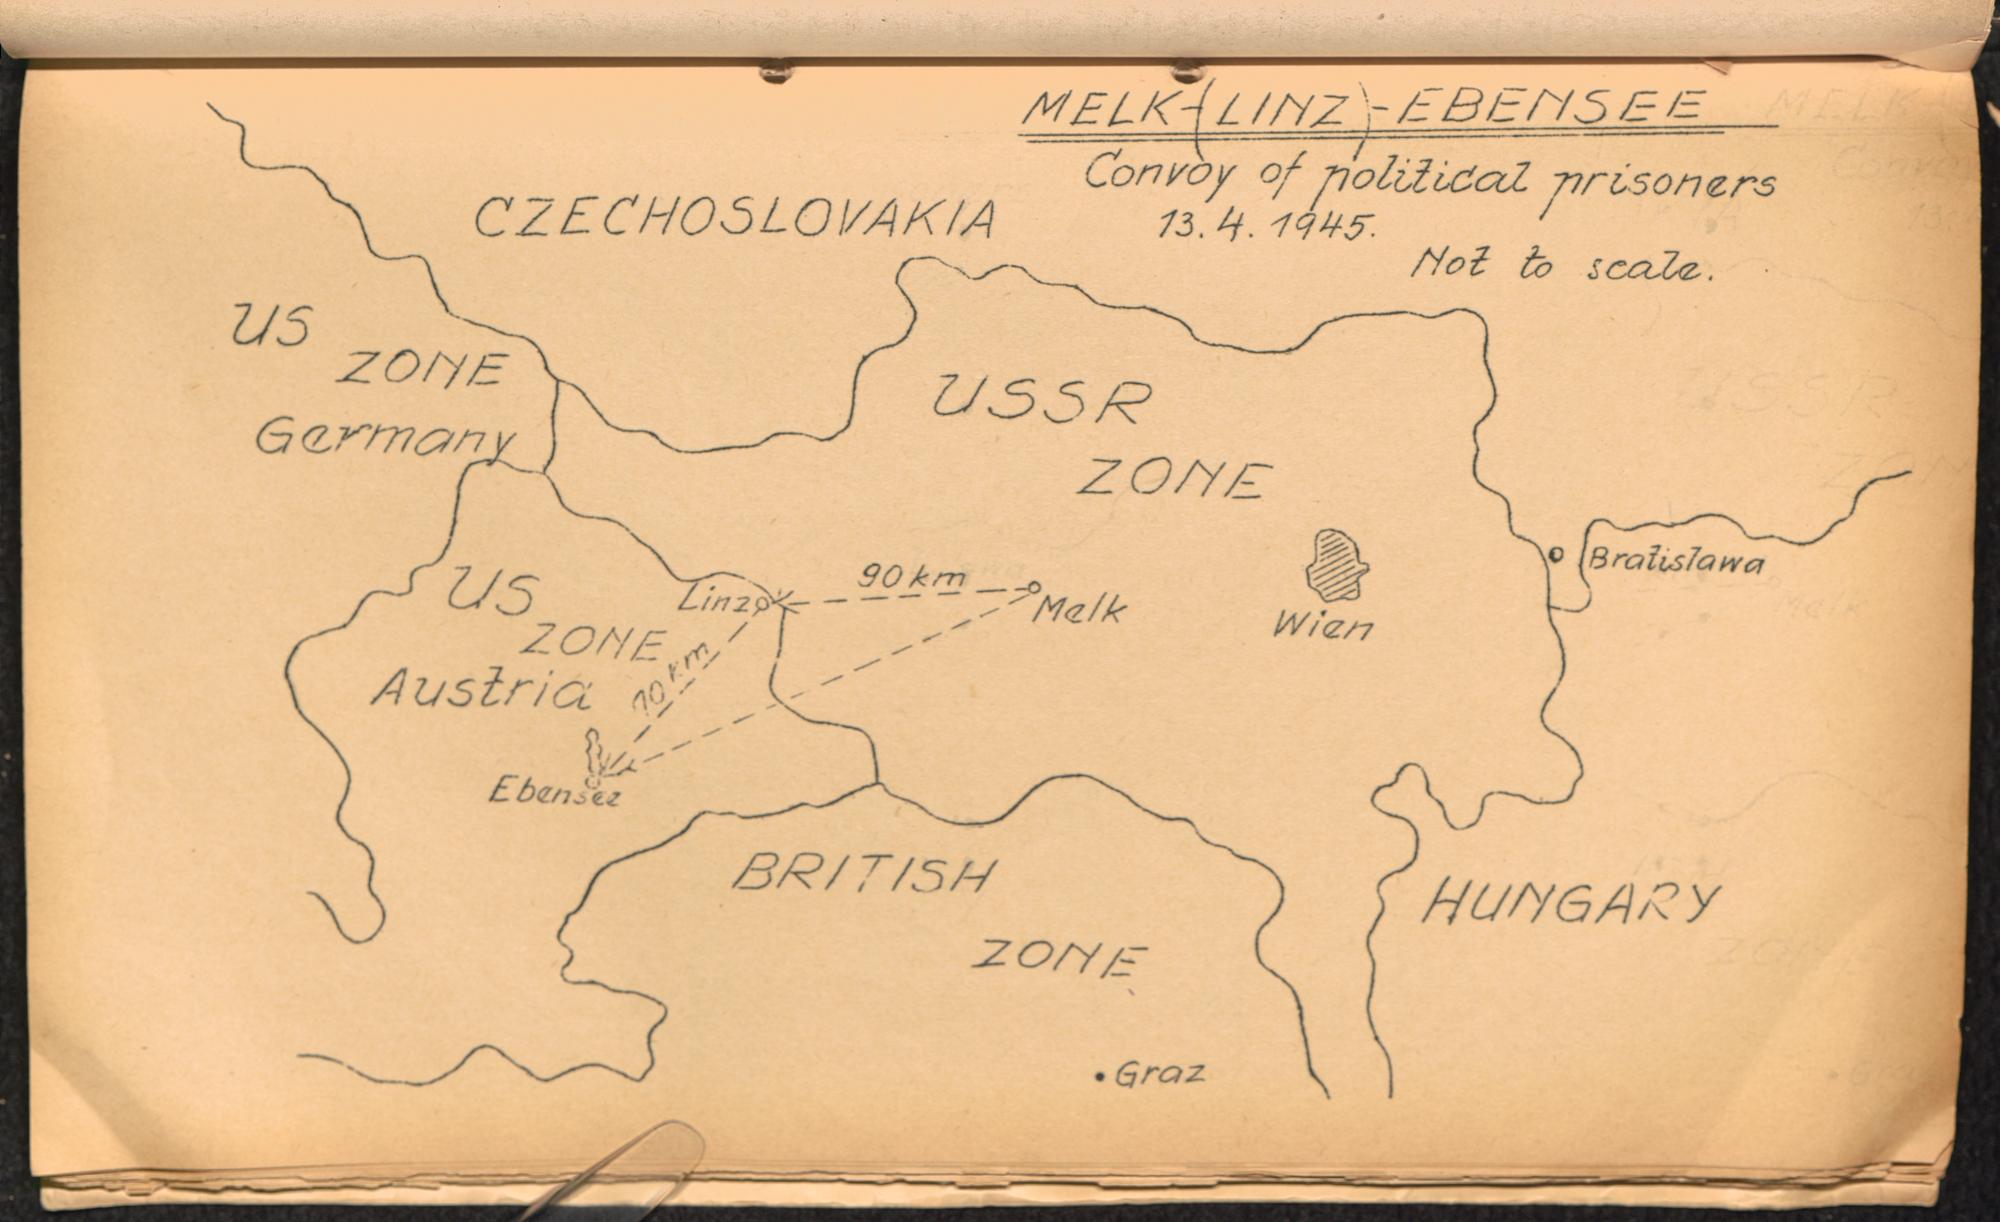 MELK-(LINZ)-EBENSEE
Convoy of political prisoners
13.4.1945.
Not to scale.
CZECHOSLOVAKIA
US
ZONE
Germany
USSR
ZONE
Bratislawa
90 km
Linz
Melk
Wien
US
ZONE
Austria
70 km
Ebensee
BRITISH
ZONE
HUNGARY
Graz